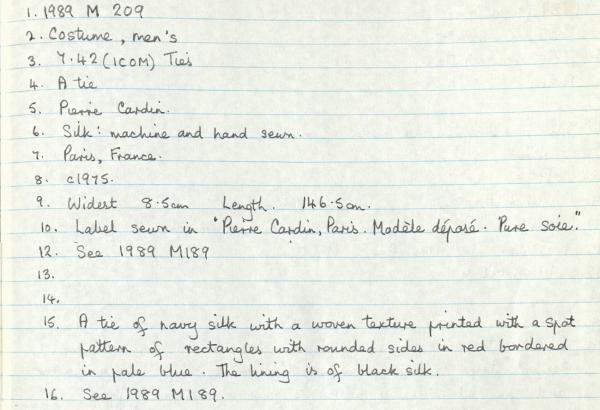 1. 1989 M 209
2. Costume, men's
3. 7.42 (ICOM) Ties
4. A tie
5. Pierre Cardin.
6. Silk: machine and hand sewn.
7. Paris, France.
8. c1975.
9. Widest 8.5cm Length. 146.5cm.
10. Label sewn in "Pierre Cardin, Paris. Modèle déposé. Pure Soie."
12. See 1989 M189
13.
14.
15. A tie of navy silk with a woven texture printed with a spot
pattern of rectangles with rounded sides in red bordered
in pale blue. The lining is of black silk.
16. See 1989 M189.